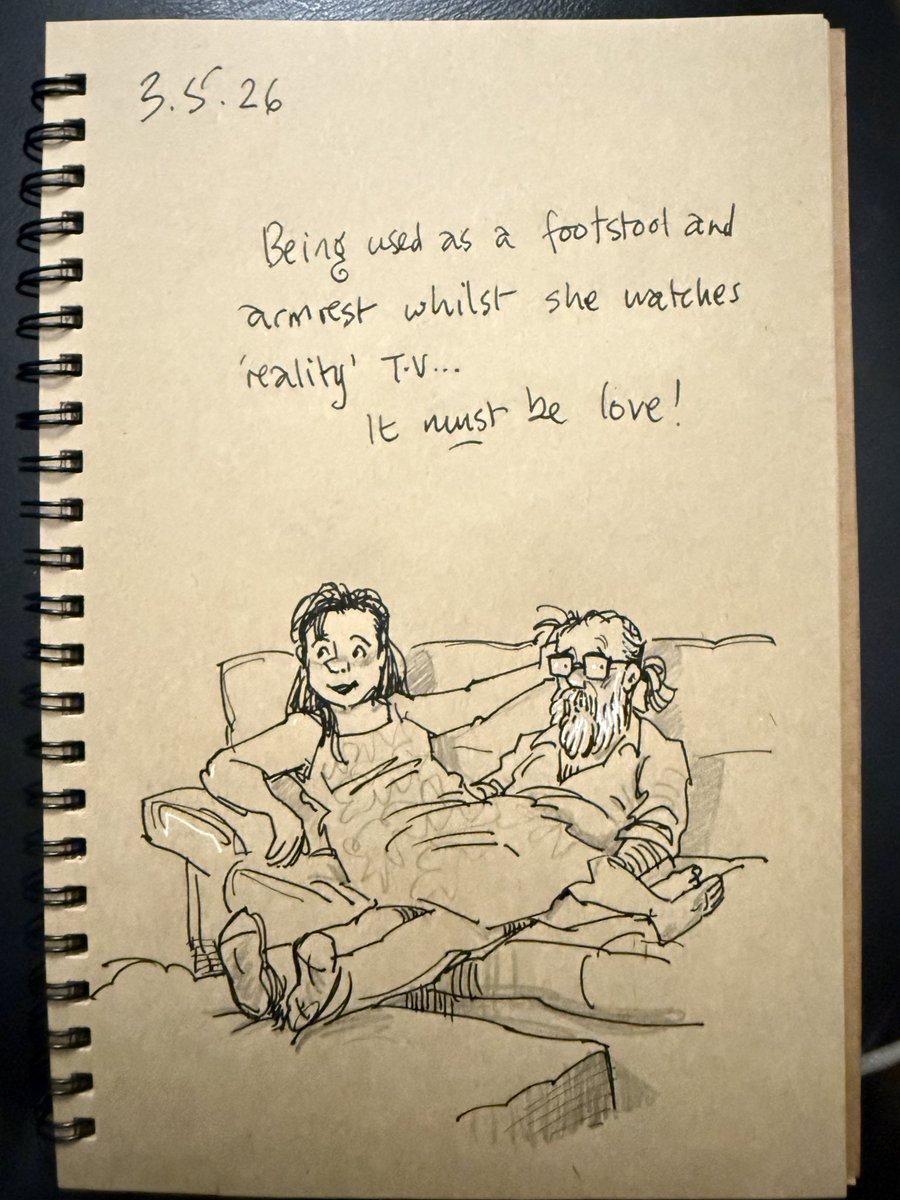 3.5.26
Being used as a footstool and
armrest whilst she watches
'reality' T.V...
It must be love!